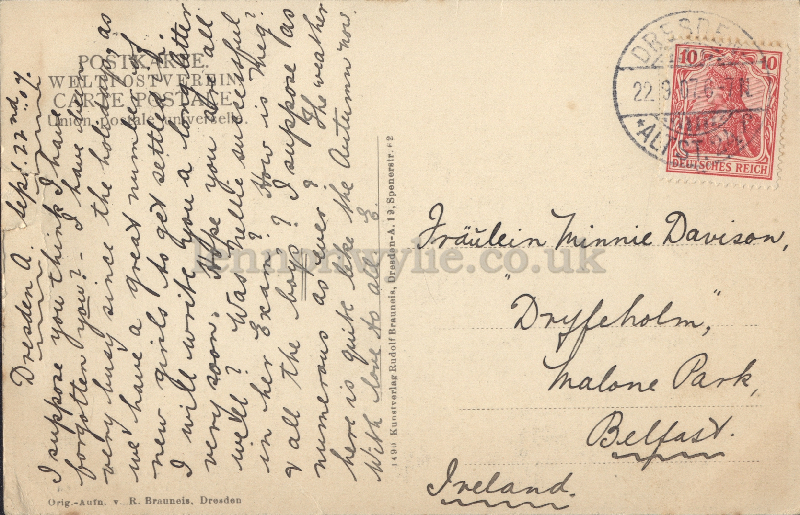 POSTKARTE.
WELTPOSTVEREIN
CARTE POSTALE
Union postale universelle.
Dresden A. Sept. 22nd. 07.
I suppose you think I have
forgotten you? - I have been
very busy since the holidays as
we have a great number of
new girls to get settled in.
I will write you a long letter
very soon. Hope you are all
well? Was Nellie successful
in her Exam? How is Meg?
& all the boys? I suppose "as
numerous as ever"? The weather
here is quite like the Autumn now.
With love to all E.
Orig.-Aufn. v. R. Brauneis, Dresden
1493 Kunstverlag Rudolf Brauneis, Dresden-A. 19, Spenerstr. 62
DRESDEN
22.9.07.6-7N.
*ALTST.
10 10
DEUTSCHES REICH
Fräulein Minnie Davison,
"Dryfeholm",
Malone Park,
Belfast.
Ireland.
lennonwylie.co.uk